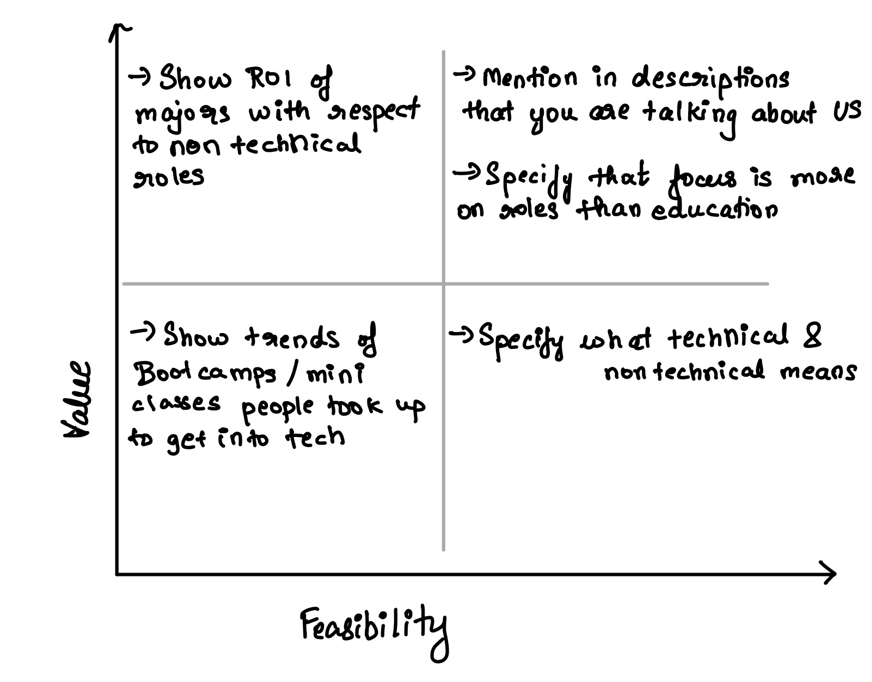 → Show ROI of
majors with respect
to non technical
roles
→ Mention in descriptions
that you are talking about US
→ Specify that focus is more
on roles than education
→ Show trends of
Boot camps / mini
classes people took up
to get into tech
→ Specify what technical &
non technical means
Value
Feasibility